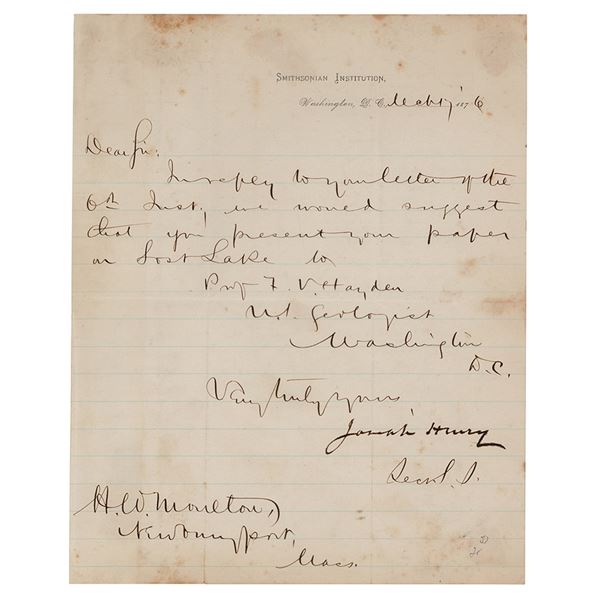 SMITHSONIAN INSTITUTION,
Washington, D. C. 1876
Dear Sir.
In reply to your letter of the
6th Inst, we would suggest
that you present your paper
on Lost Lake to
Prof F. V. Hayden
U.S. Geologist
Washington
D.C.
Very truly yours
Joseph Henry
Sec. S. I.
H. W. Moulton,
Newburyport,
Mass.